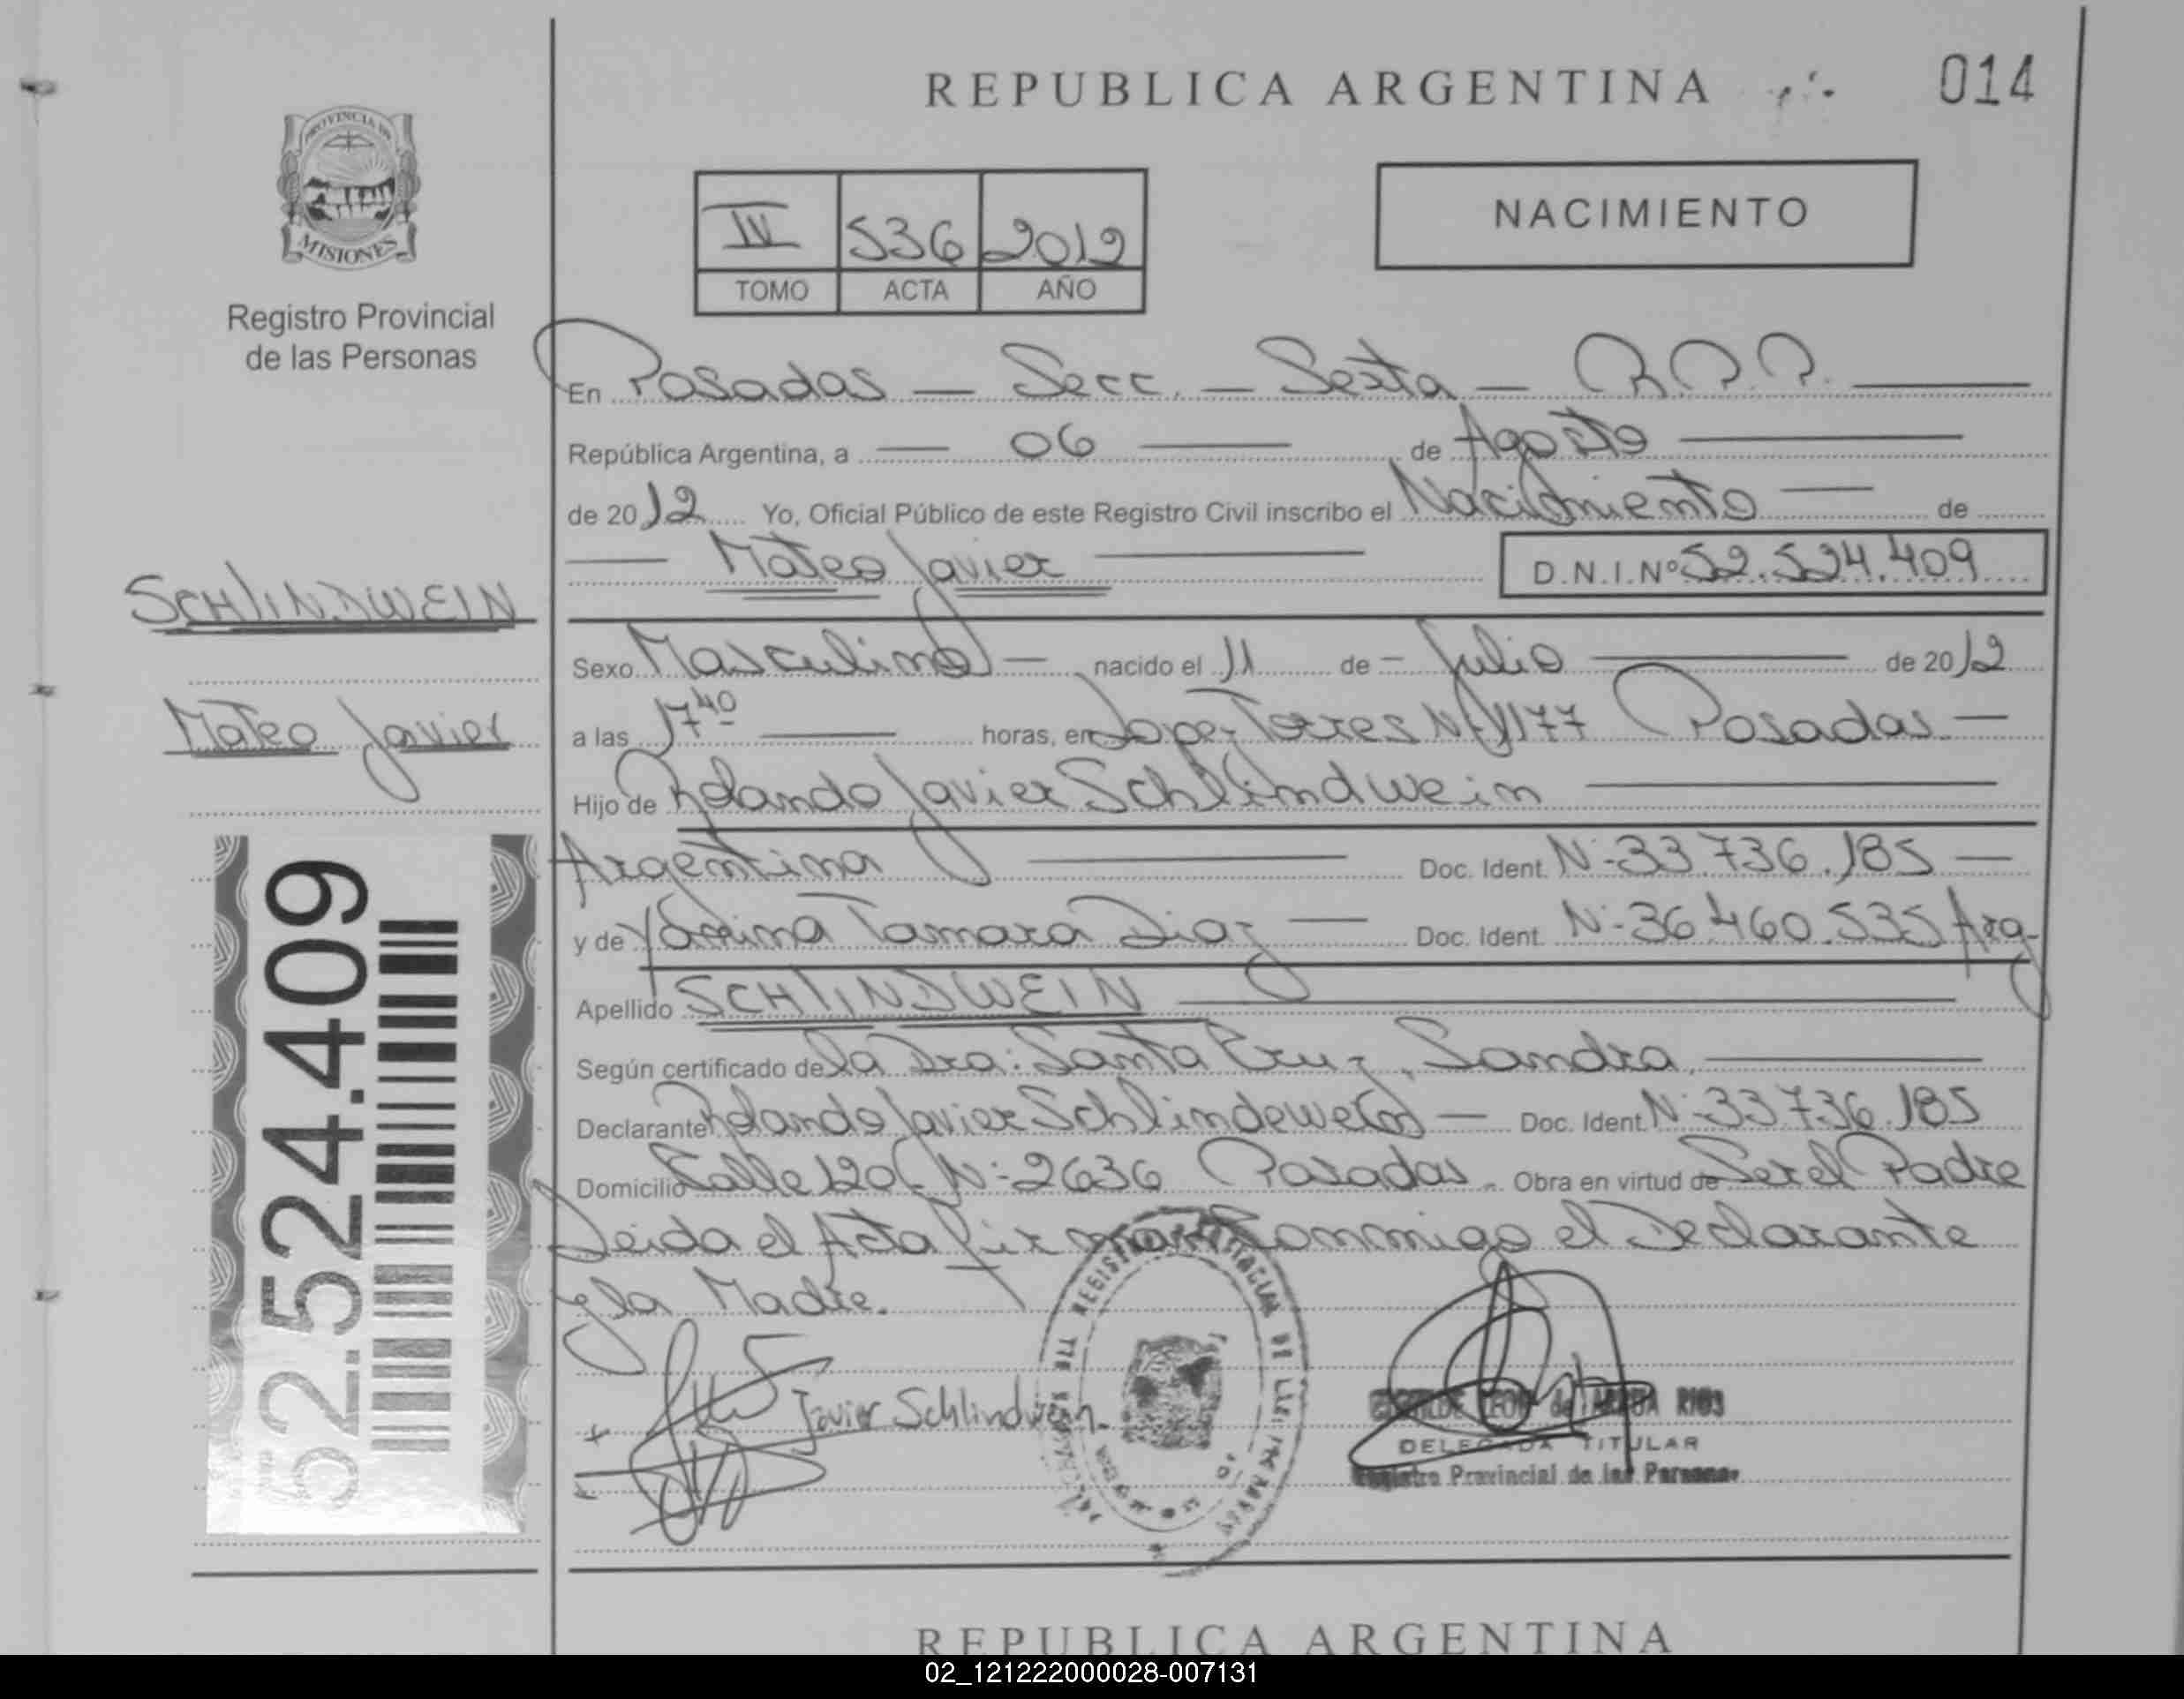 REPUBLICA ARGENTINA
014
PROVINCIA DE
MISIONES
Registro Provincial
de las Personas
IV 536 2012
TOMO ACTA AÑO
NACIMIENTO
En Posadas — Secc. — Sexta — R.P.P.
República Argentina, a — 06 — de Agosto
de 2012 Yo, Oficial Público de este Registro Civil inscribo el Nacimiento — de
Mateo Javier
D.N.I.Nº 52.524.409
SCHLINDWEIN
Mateo Javier
52.524.409
Sexo Masculino — nacido el 11 de — Julio — de 2012
a las 17 40 — horas, en Lopez Torres Nº 1177 Posadas —
Hijo de Rolando Javier Schlindwein
Argentina — Doc. Ident. Nº 33.736.185 —
y de Tamara Diaz — Doc. Ident. Nº 36.460.535 Arg
Apellido SCHLINDWEIN
Según certificado de la Dra: Santa Cruz, Sandra
Declarante Rolando Javier Schlindewein — Doc. Ident. Nº 33.736.185
Domicilio Calle 120 Nº 2636 Posadas. Obra en virtud de Ser el Padre
Leida el Acta firman conmigo el Declarante
y la Madre.
Javier Schlindwein
LEON de RIOS
DELEGADA TITULAR
Registro Provincial de las Personas
REPUBLICA ARGENTINA
02_121222000028-007131